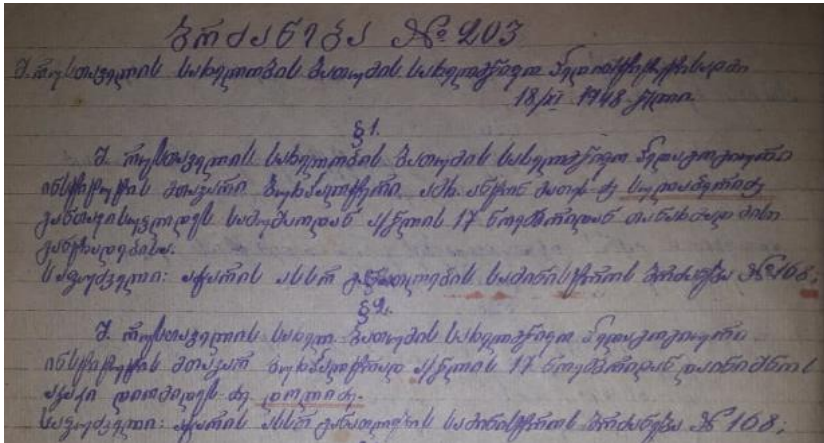 ბრძანება № 203
შ. რუსთაველის სახელობის ბათუმის სახელმწიფო პედინსტიტუტისადმი
18/XI 1948 წელი.
§1.
შ. რუსთაველის სახელობის ბათუმის სახელმწიფო პედაგოგიური
ინსტიტუტის მთავარი ბუხჰალტერი ამხ. ანტონ
განთავისუფლდეს სამუშაოდან ა/წლის 17 ნოემბრიდან თანახმად მისი
განცხადებისა.
საფუძველი: აჭარის ასსრ განათლების სამინისტროს ბრძანება № 168;
§2.
შ. რუსთაველის სახელ. ბათუმის სახელმწიფო პედაგოგიური
ინსტიტუტის მთავარ ბუხჰალტრად ა/წლის 17 ნოემბრიდან დაინიშნოს
აკაკი დიომიდეს ძე დოლიძე.
საფუძველი: აჭარის ასსრ განათლების სამინისტროს ბრძანება № 168;